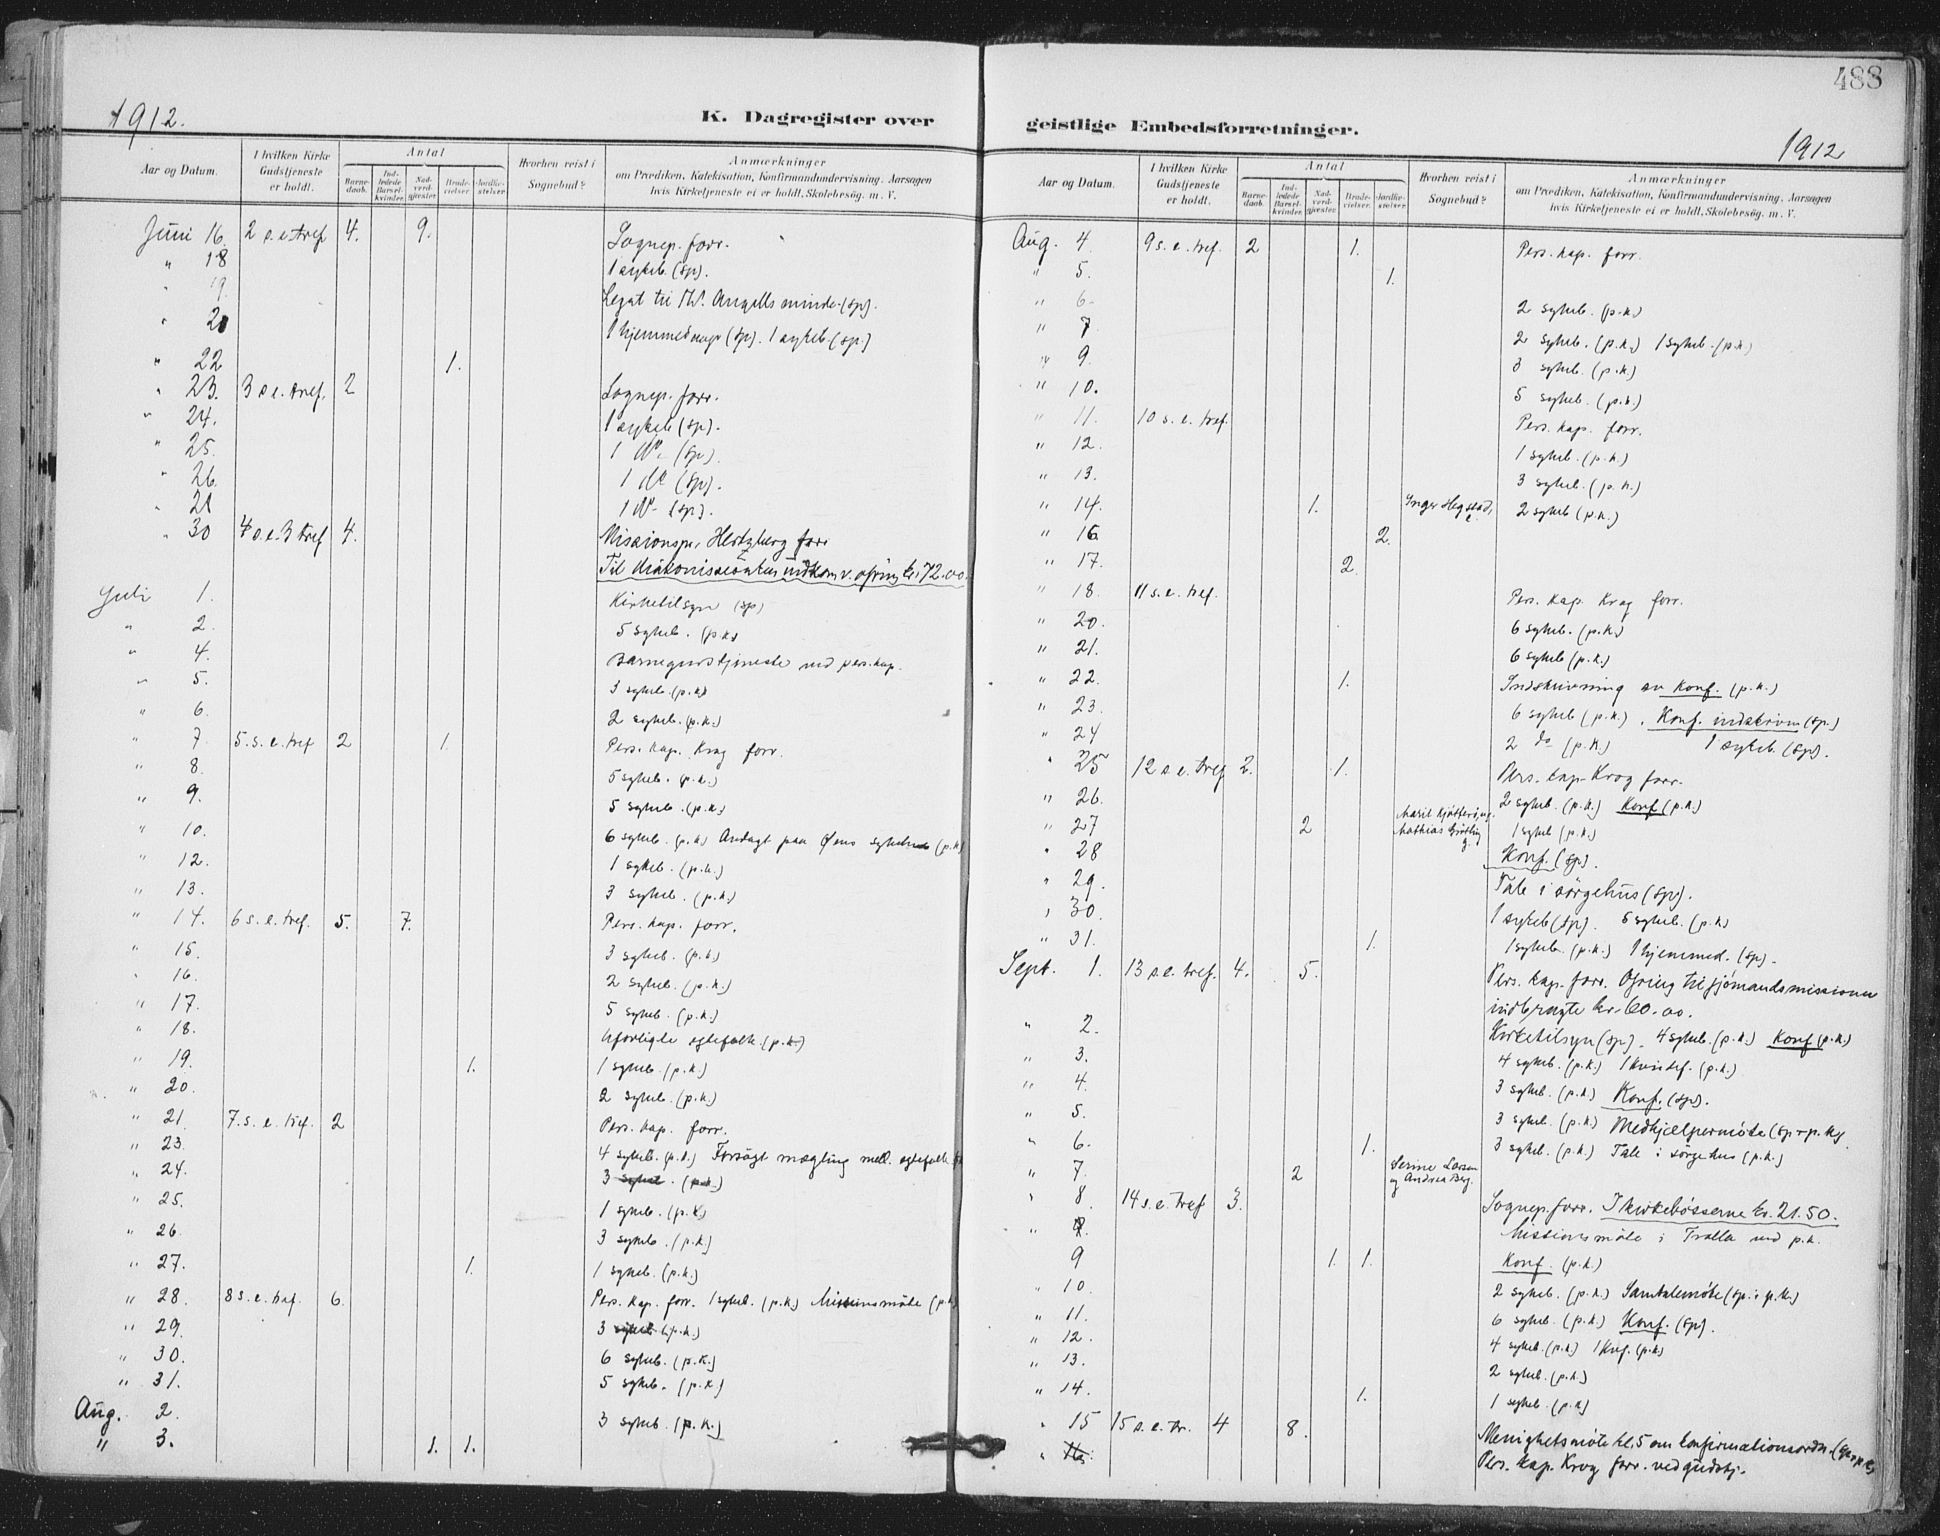 488
1912.
K. Dagregister over
geistlige Embedsforretninger.
1912
Aar og Datum.
I hvilken Kirke Gudstjeneste er holdt.
Antal
Barnedaab.
Indledede Barselkvinder.
Nadverdgjester.
Brudevielser.
Jordfæstelser.
Hvorhen reist i Sognebud?
Anmærkninger
om Prædiken, Katekisation, Konfirmandundervisning. Aarsagen
hvis Kirketjeneste ei er holdt. Skolebesøg. m. V.
Juni 16. 2 s.e.tref 4. 9. Sognep. forr.
" 18 1 sykeb. (sp).
" 19. Legat til Th. Angells minde (sp).
" 20 1 hjemmed (sp). 1 sykeb. (sp)
" 22 1.
" 23. 3 s.e.tref. 2 Sognep. forr.
" 24. 1 sykeb (sp).
" 25. 1 do (sp).
" 26. 1 do (sp).
" 28 1 do (sp).
" 30 4 s.e. tref 4. Missionspr. Hertzberg forr
Til Diakonisse indkom v. ofring kr. 72.00.
Juli 1. Kirketilsyn (sp)
" 2. 5 sykeb. (p.k)
" 4. Barnegudstjeneste ved pers. kap.
" 5. 3 sykeb. (p.k)
" 6. 2 sykeb. (p.k.)
" 7. 5. s. e. tref 2 1. Pers. kap. Krag forr.
" 8. 5 sykeb. (p.k.)
" 9. 5 sykeb. (p.k.)
" 10. 6 sykeb. (p.k) Andagt paa Øens sykehus (p.k)
" 12. 1 sykeb. (p.k.)
" 13. 3 sykeb. (p.k.)
" 14. 6 s. e. tref. 5. 7. Pers. kap. forr.
" 15. 3 sykeb. (p.k)
" 16. 2 sykeb. (p.k.)
" 17. 5 sykeb. (p.k.)
" 18. Uforligte egtefolk (p.k.)
" 19. 1. 1 sykeb. (p.k.)
" 20. 2 sykeb. (p.k.)
" 21. 7. s. e. tref. 2 Pers. kap. forr.
" 23. 4 sykeb. (p.k.) Forsøgt mægling mell. egtefolk
" 24. 3 sykeb. (p.k.)
" 25. 1 sykeb. (p.k)
" 26. 3 sykeb. (p.k.)
" 27. 1. 1 sykeb. (p.k.)
" 28. 8 s. e. tref. 6. Pers. kap. forr. 1 sykeb. (p.k.) Missionsmøte (p.k)
" 29. 3 sykeb. (p.k.)
" 30. 6 sykeb. (p.k.)
" 31. 5 sykeb. (p.k)
Aug. 2. 3 sykeb. (p.k.)
" 3. 1. 1.
Aar og Datum.
I hvilken Kirke Gudstjeneste er holdt.
Antal
Barnedaab.
Indledede Barselkvinder.
Nadverdgjester.
Brudevielser.
Jordfæstelser.
Hvorhen reist i Sognebud?
Anmærkninger
om Prædiken, Katekisation, Konfirmandundervisning. Aarsagen
hvis Kirketjeneste ei er holdt. Skolebesøg. m. V.
Aug. 4. 9 s. e. tref. 2 1. Pers. kap. forr.
" 5. 1.
" 6. 2 sykeb. (p.k.)
" 7 2 sykeb. (p.k.) 1 sykeb. (p.k)
" 9. 3 sykeb. (p.k.)
" 10. 5 sykeb. (p.k.)
" 11. 10 s. e. tref. Pers. kap. forr.
" 12. 1 sykeb. (p.k.)
" 13. 3 sykeb. (p.k.)
" 14. 1. Inger Hegstad, 2 sykeb (p.k.)
" 16 2.
" 17. 2.
" 18. 11 s. e. tref. Pers. kap. Krag forr.
" 20. 6 sykeb. (p.k.)
" 21. 6 sykeb (p.k.)
" 22. 1. Indskrivning av Konf. (p.k.)
" 23. 6 sykeb (p.k.). Konf. indskrivn (sp.)
" 24 2 do (p.k.) 1 sykeb. (sp).
" 25 12 s.e. tref 2. 1. Pers. kap. Krag forr.
" 26. 2 sykeb. (p.k.) Konf (p.k.)
" 27 2 Marit og Mathias 1 sykeb (p.k.)
" 28 Konf. (sp).
" 29. Tale i sørgehus (sp).
" 30. 1 sykeb (sp). 5 sykeb. (p.k)
" 31. 1. 1 sykeb. (p.k.) 1 hjemmed. (sp).
Sept. 1. 13 s.e. tref. 4. 5. Pers. kap. forr. Ofring til sjømandsmissionen
indbragte kr. 60.00.
" 2. Kirketilsyn (sp). 4 sykeb. (p.k.) Konf (p.k.)
" 3. 4 sykeb. (p.k.) 1 (p.k.)
" 4. 3 sykeb. (p.k.) Konf. (sp).
" 5. 3 sykeb. (p.k) Medhjælpermøte (sp + p.k)
" 6. 1. 3 sykeb. (p.k.) Tale i sørgehus (p.k.)
" 7. 2 Serine Larsen og Andrea Berg.
" 8. 14 s.e. tref 3. Sognep. forr. I kirkebøsserne kr. 21.50.
Missionsmøte i Trolla ved p.k.
9 1. 1. Konf. (p.k.)
" 10. 2 sykeb. (p.k.) Samtalemøte (sp. i p.k.)
" 11. 6 sykeb. (p.k.) Konf. (sp).
" 12. 4 sykeb. (p.k) 1 Knf. (p.k)
" 13. 2 sykeb. (p.k.)
" 14. 1. 1 sykeb. (p.k)
" 15 15 s.e. tr. 4 8. Menighetsmøte kl. 5 om konfirmationsordn. (sp + p.k)
" 16. Pers. kap. Krag forr. ved gudstj.